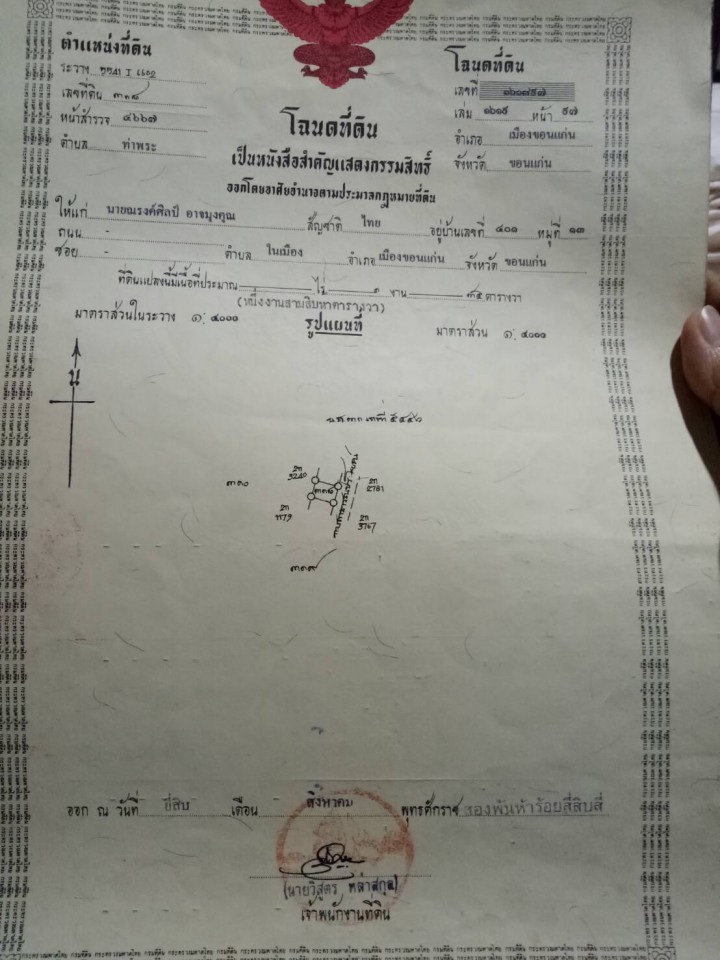 ตำแหน่งที่ดิน
ระวาง 5541 I ๘๘02
เลขที่ดิน ๓๓๘
หน้าสำรวจ ๔๖๖๗
ตำบล ท่าพระ
โฉนดที่ดิน
เลขที่ ๑๖๑๙๕๗
เล่ม ๑๖๑๕ หน้า ๕๗
อำเภอ เมืองขอนแก่น
จังหวัด ขอนแก่น
โฉนดที่ดิน
เป็นหนังสือสำคัญแสดงกรรมสิทธิ์
ออกโดยอาศัยอำนาจตามประมวลกฎหมายที่ดิน
ให้แก่ นายณรงค์ศิลป์ อาจมุงคุณ สัญชาติ ไทย อยู่บ้านเลขที่ ๔๐๑ หมู่ที่ ๑๓
ถนน -
ซอย - ตำบล ในเมือง อำเภอ เมืองขอนแก่น จังหวัด ขอนแก่น
ที่ดินแปลงนี้มีเนื้อที่ประมาณ ไร่ ๑ งาน ๓๕ ตารางวา
(หนึ่งงานสามสิบห้าตารางวา)
มาตราส่วนในระวาง ๑: ๔๐๐๐ รูปแผนที่ มาตราส่วน ๑: ๔๐๐๐
น
๓๓๐
2ท
3240
๓๓๘
2ท
2781
2ท
1179
2ท
3767
๓๓๙
ออก ณ วันที่ ยี่สิบ เดือน สิงหาคม พุทธศักราช สองพันห้าร้อยสี่สิบสี่
(นายวิสูตร หล่าสกุล)
เจ้าพนักงานที่ดิน